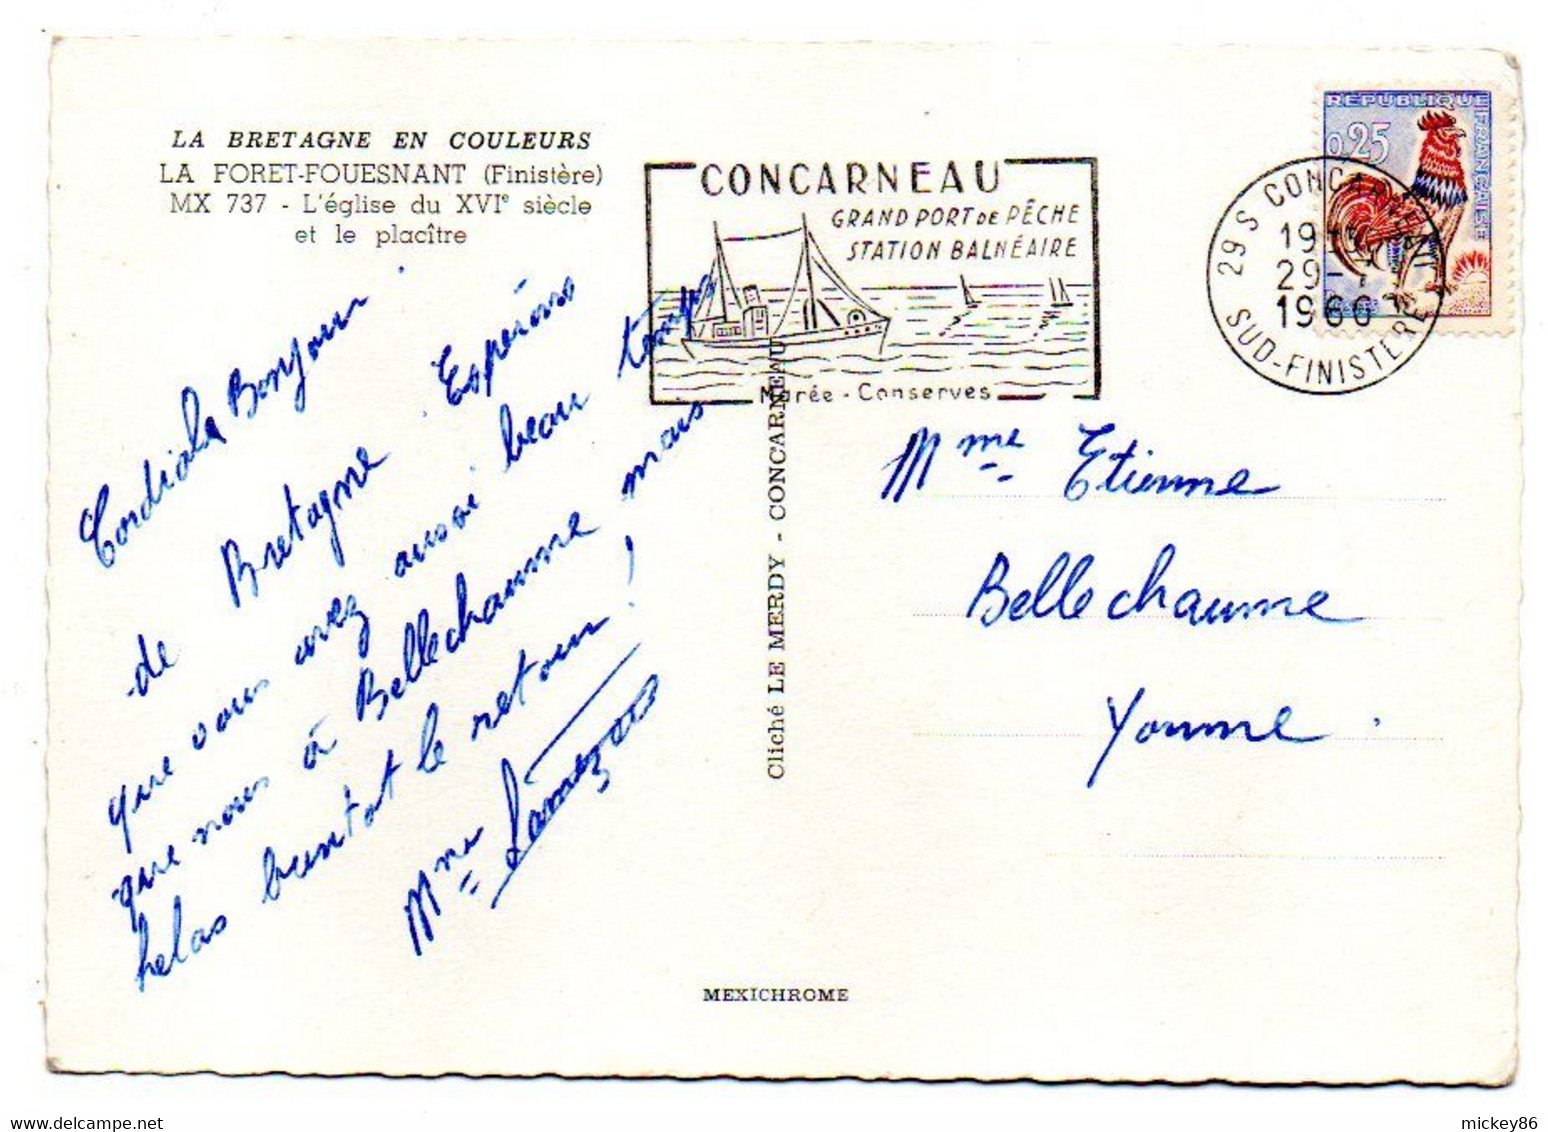 LA BRETAGNE EN COULEURS
LA FORET-FOUESNANT (Finistère)
MX 737 - L'église du XVIe siècle
et le placître
CONCARNEAU
GRAND PORT DE PÊCHE
STATION BALNÉAIRE
Marée - Conserves
RÉPUBLIQUE FRANÇAISE
0,25
29 S CONCARNEAU
29-
1966
SUD-FINISTERE
Cordiale Bonjour
de Bretagne. Espérons
que vous avez aussi beau temps
que nous à Bellechaume mais
helas bientot le retour !
Mme
Mme Etienne
Bellechaume
Yonne.
Cliché LE MERDY - CONCARNEAU
MEXICHROME
mickey86